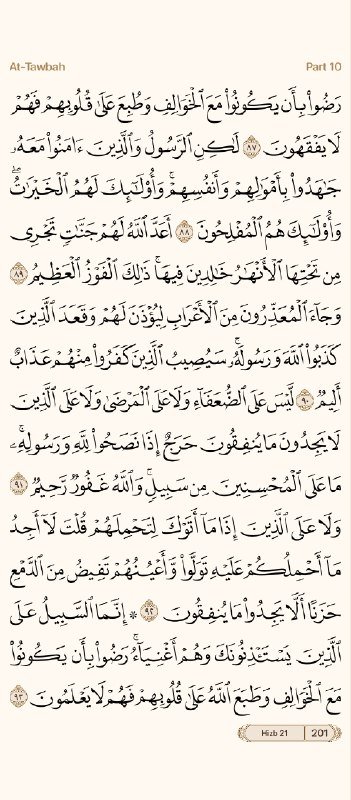 At-Tawbah Part 10
رَضُوا۟ بِأَن يَكُونُوا۟ مَعَ ٱلْخَوَالِفِ وَطُبِعَ عَلَىٰ قُلُوبِهِمْ فَهُمْ
لَا يَفْقَهُونَ ٨٧ لَٰكِنِ ٱلرَّسُولُ وَٱلَّذِينَ ءَامَنُوا۟ مَعَهُۥ
جَٰهَدُوا۟ بِأَمْوَٰلِهِمْ وَأَنفُسِهِمْ ۚ وَأُو۟لَٰٓئِكَ لَهُمُ ٱلْخَيْرَٰتُ ۖ
وَأُو۟لَٰٓئِكَ هُمُ ٱلْمُفْلِحُونَ ٨٨ أَعَدَّ ٱللَّهُ لَهُمْ جَنَّٰتٍ تَجْرِى
مِن تَحْتِهَا ٱلْأَنْهَٰرُ خَٰلِدِينَ فِيهَا ۚ ذَٰلِكَ ٱلْفَوْزُ ٱلْعَظِيمُ ٨٩
وَجَآءَ ٱلْمُعَذِّرُونَ مِنَ ٱلْأَعْرَابِ لِيُؤْذَنَ لَهُمْ وَقَعَدَ ٱلَّذِينَ
كَذَبُوا۟ ٱللَّهَ وَرَسُولَهُۥ ۚ سَيُصِيبُ ٱلَّذِينَ كَفَرُوا۟ مِنْهُمْ عَذَابٌ
أَلِيمٌ ٩٠ لَّيْسَ عَلَى ٱلضُّعَفَآءِ وَلَا عَلَى ٱلْمَرْضَىٰ وَلَا عَلَى ٱلَّذِينَ
لَا يَجِدُونَ مَا يُنفِقُونَ حَرَجٌ إِذَا نَصَحُوا۟ لِلَّهِ وَرَسُولِهِۦ ۚ
مَا عَلَى ٱلْمُحْسِنِينَ مِن سَبِيلٍ ۚ وَٱللَّهُ غَفُورٌ رَّحِيمٌ ٩١
وَلَا عَلَى ٱلَّذِينَ إِذَا مَآ أَتَوْكَ لِتَحْمِلَهُمْ قُلْتَ لَآ أَجِدُ
مَآ أَحْمِلُكُمْ عَلَيْهِ تَوَلَّوا۟ وَّأَعْيُنُهُمْ تَفِيضُ مِنَ ٱلدَّمْعِ
حَزَنًا أَلَّا يَجِدُوا۟ مَا يُنفِقُونَ ٩٢ ۞ إِنَّمَا ٱلسَّبِيلُ عَلَى
ٱلَّذِينَ يَسْتَـْٔذِنُونَكَ وَهُمْ أَغْنِيَآءُ ۚ رَضُوا۟ بِأَن يَكُونُوا۟
مَعَ ٱلْخَوَالِفِ وَطَبَعَ ٱللَّهُ عَلَىٰ قُلُوبِهِمْ فَهُمْ لَا يَعْلَمُونَ ٩٣
Hizb 21 201